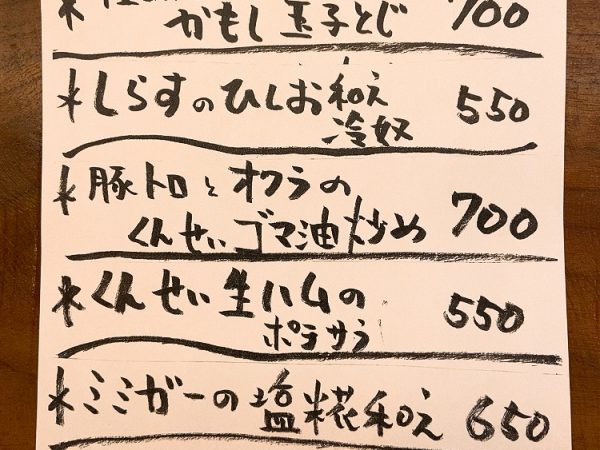 かもし玉子とじ 700
*しらすのひしお和え 550
冷奴
*豚トロとオクラの
くんせいゴマ油炒め 700
*くんせい生ハムの 550
ポテサラ
*ミミガーの塩糀和え 650